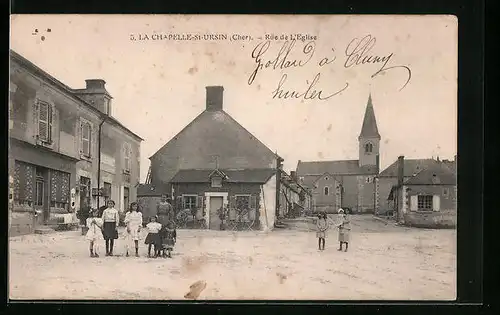 5. LA CHAPELLE-St-URSIN (Cher). - Rue de L'Eglise
à Cluny